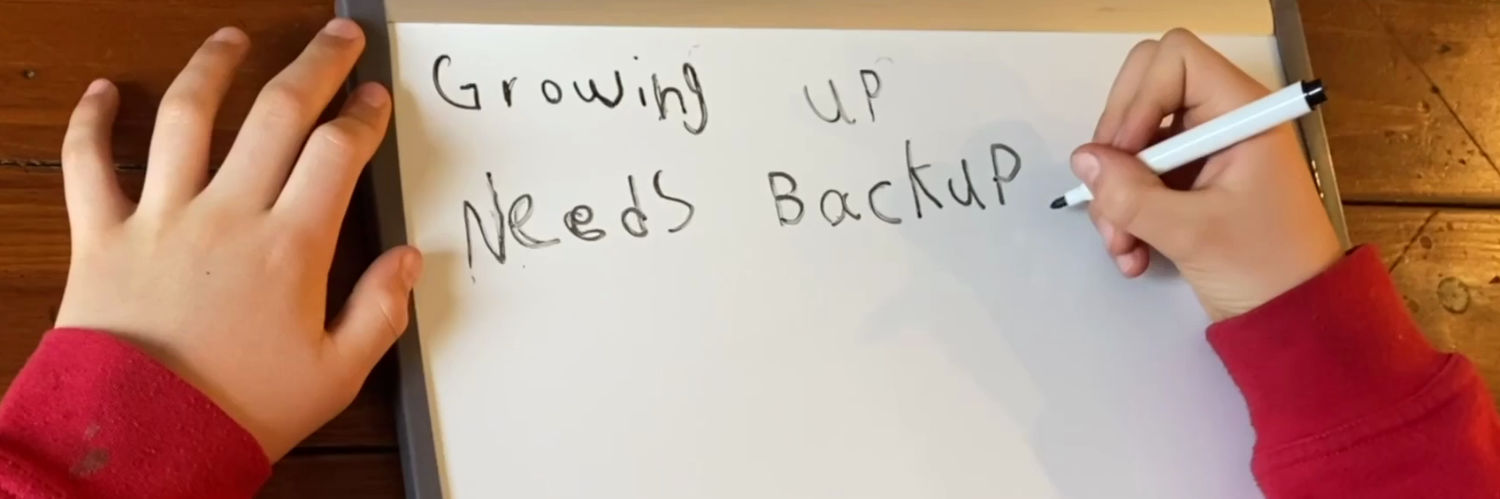 Growing up
Needs Backup